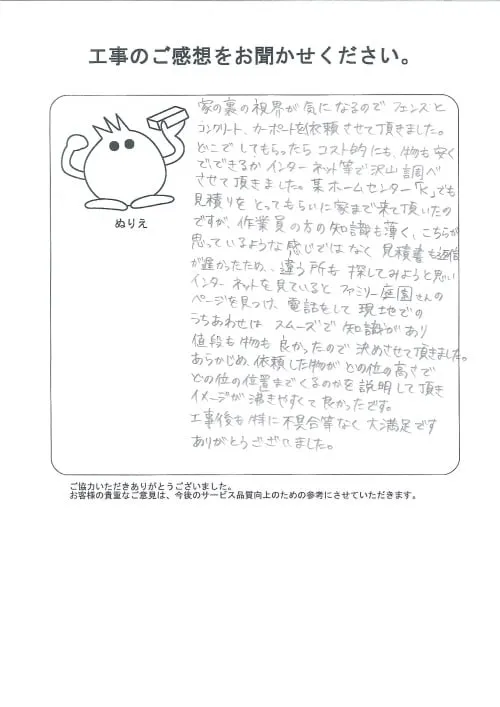 工事のご感想をお聞かせください。
家の裏の視界が気になるので フェンスと
コンクリート、カーポートを依頼させて頂きました。
どこでしてもらったら コスト的にも、物も安く
できるか インターネット等で沢山調べ
させて頂きました。某ホームセンター「K」でも
見積りをとってもらいに家まで来て頂いたの
ですが、作業員の方の知識も薄く、こちらが
思っているような感じではなく 見積書も返信
が遅かったため、違う所も 探してみようと思い
インターネットを見ていると ファミリー庭園さんの
ページを見つけ、電話をして 現地での
うちあわせは スムーズで 知識があり
値段も物も 良かったので 決めさせて頂きました。
あらかじめ、依頼した物が どの位の高さで
どの位の位置までくるのかを 説明して頂き
イメージが 沸きやすくて 良かったです。
工事後も 特に 不具合等なく 大満足です
ありがとうございました。
ぬりえ
ご協力いただきありがとうございました。
お客様の貴重なご意見は、今後のサービス品質向上のための参考にさせていただきます。